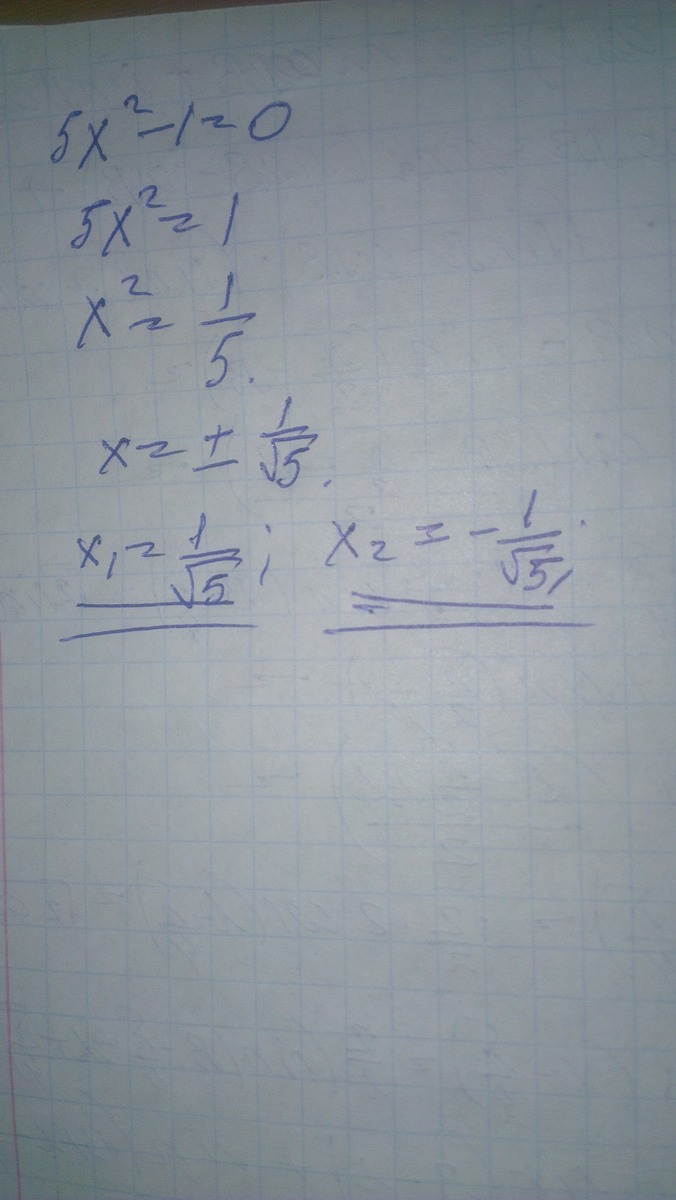 5x² - 1 = 0
5x² = 1
x² = 1/5.
x = ± 1/√5.
x₁ = 1/√5; x₂ = - 1/√5;